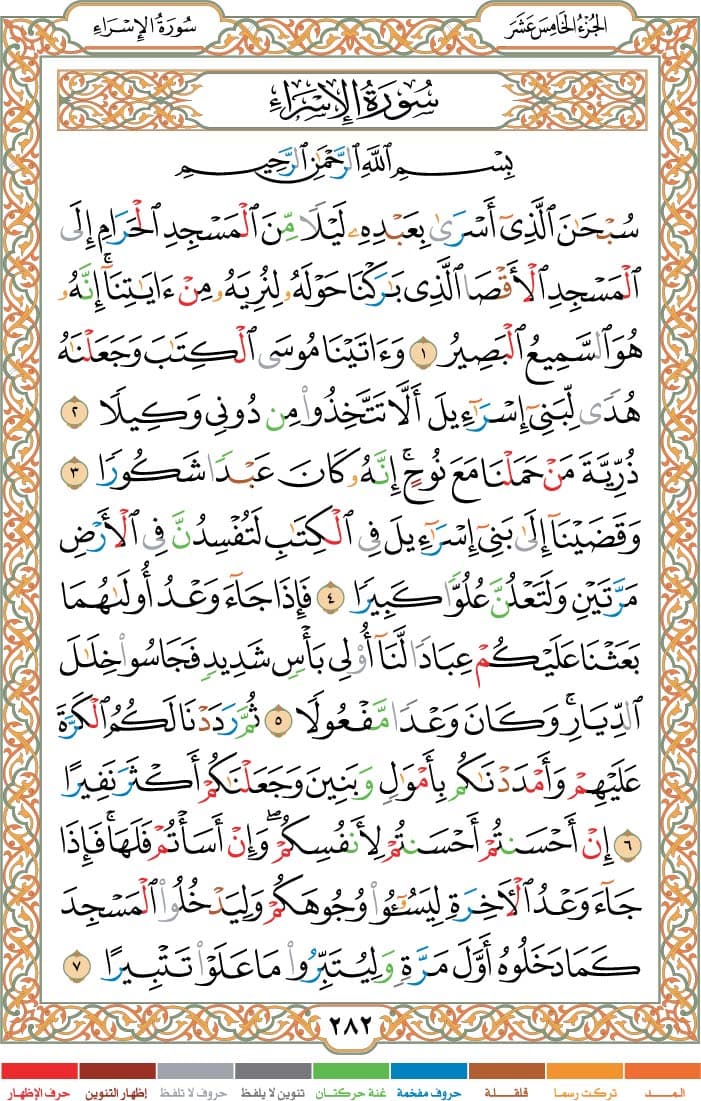 الجُزْءُ الخَامِسَ عَشَرَ
سُورَةُ الإِسْرَاءِ
سُورَةُ الإِسْرَاءِ
بِسْمِ ٱللَّهِ ٱلرَّحْمَٰنِ ٱلرَّحِيمِ
سُبْحَٰنَ ٱلَّذِىٓ أَسْرَىٰ بِعَبْدِهِۦ لَيْلًا مِّنَ ٱلْمَسْجِدِ ٱلْحَرَامِ إِلَى
ٱلْمَسْجِدِ ٱلْأَقْصَا ٱلَّذِى بَٰرَكْنَا حَوْلَهُۥ لِنُرِيَهُۥ مِنْ ءَايَٰتِنَآ ۚ إِنَّهُۥ
هُوَ ٱلسَّمِيعُ ٱلْبَصِيرُ ١ وَءَاتَيْنَا مُوسَى ٱلْكِتَٰبَ وَجَعَلْنَٰهُ
هُدًى لِّبَنِىٓ إِسْرَٰٓءِيلَ أَلَّا تَتَّخِذُوا۟ مِن دُونِى وَكِيلًا ٢
ذُرِّيَّةَ مَنْ حَمَلْنَا مَعَ نُوحٍ ۚ إِنَّهُۥ كَانَ عَبْدًا شَكُورًا ٣
وَقَضَيْنَآ إِلَىٰ بَنِىٓ إِسْرَٰٓءِيلَ فِى ٱلْكِتَٰبِ لَتُفْسِدُنَّ فِى ٱلْأَرْضِ
مَرَّتَيْنِ وَلَتَعْلُنَّ عُلُوًّا كَبِيرًا ٤ فَإِذَا جَآءَ وَعْدُ أُولَىٰهُمَا
بَعَثْنَا عَلَيْكُمْ عِبَادًا لَّنَآ أُو۟لِى بَأْسٍ شَدِيدٍ فَجَاسُوا۟ خِلَٰلَ
ٱلدِّيَارِ ۚ وَكَانَ وَعْدًا مَّفْعُولًا ٥ ثُمَّ رَدَدْنَا لَكُمُ ٱلْكَرَّةَ
عَلَيْهِمْ وَأَمْدَدْنَٰكُم بِأَمْوَٰلٍ وَبَنِينَ وَجَعَلْنَٰكُمْ أَكْثَرَ نَفِيرًا
٦ إِنْ أَحْسَنتُمْ أَحْسَنتُمْ لِأَنفُسِكُمْ ۖ وَإِنْ أَسَأْتُمْ فَلَهَا ۚ فَإِذَا
جَآءَ وَعْدُ ٱلْءَاخِرَةِ لِيَسُۥٓـُٔوا۟ وُجُوهَكُمْ وَلِيَدْخُلُوا۟ ٱلْمَسْجِدَ
كَمَا دَخَلُوهُ أَوَّلَ مَرَّةٍ وَلِيُتَبِّرُوا۟ مَا عَلَوْا۟ تَتْبِيرًا ٧
٢٨٢
المــــد تركت رسما قلقـــلة حروف مفخمة غنة حركتان تنوين لا يلفظ حروف لا تلفظ إظهار التنوين حرف الإظهار